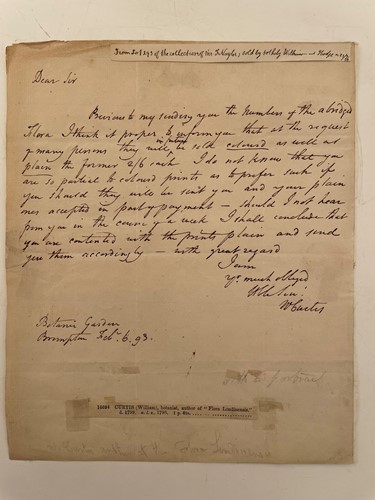 From Lot 293 of the collection of Mr. Naylor, sold by Sotheby Wilkinson & Hodge
Dear Sir
Previous to my sending you the Numbers of the abridged
Flora I think it proper to inform you that at the request
of many persons they will in future be sold coloured as well as
plain the former 2/6 each. I do not know that you
are so partial to coloured prints as to prefer such if
you should they will be sent you and your plain
ones accepted in part of payment – should I not hear
from you in the course of a week I shall conclude that
you are contented with the prints plain and send
you them accordingly – with great regard
I am
Yr. much obliged
W Curtis
Botanic Garden
Brompton Feb. 6. 93.
CURTIS (William), botanist, author of "Flora Londinensis,"
d. 1799. a. l. s., 1793. 1 p. 4to.